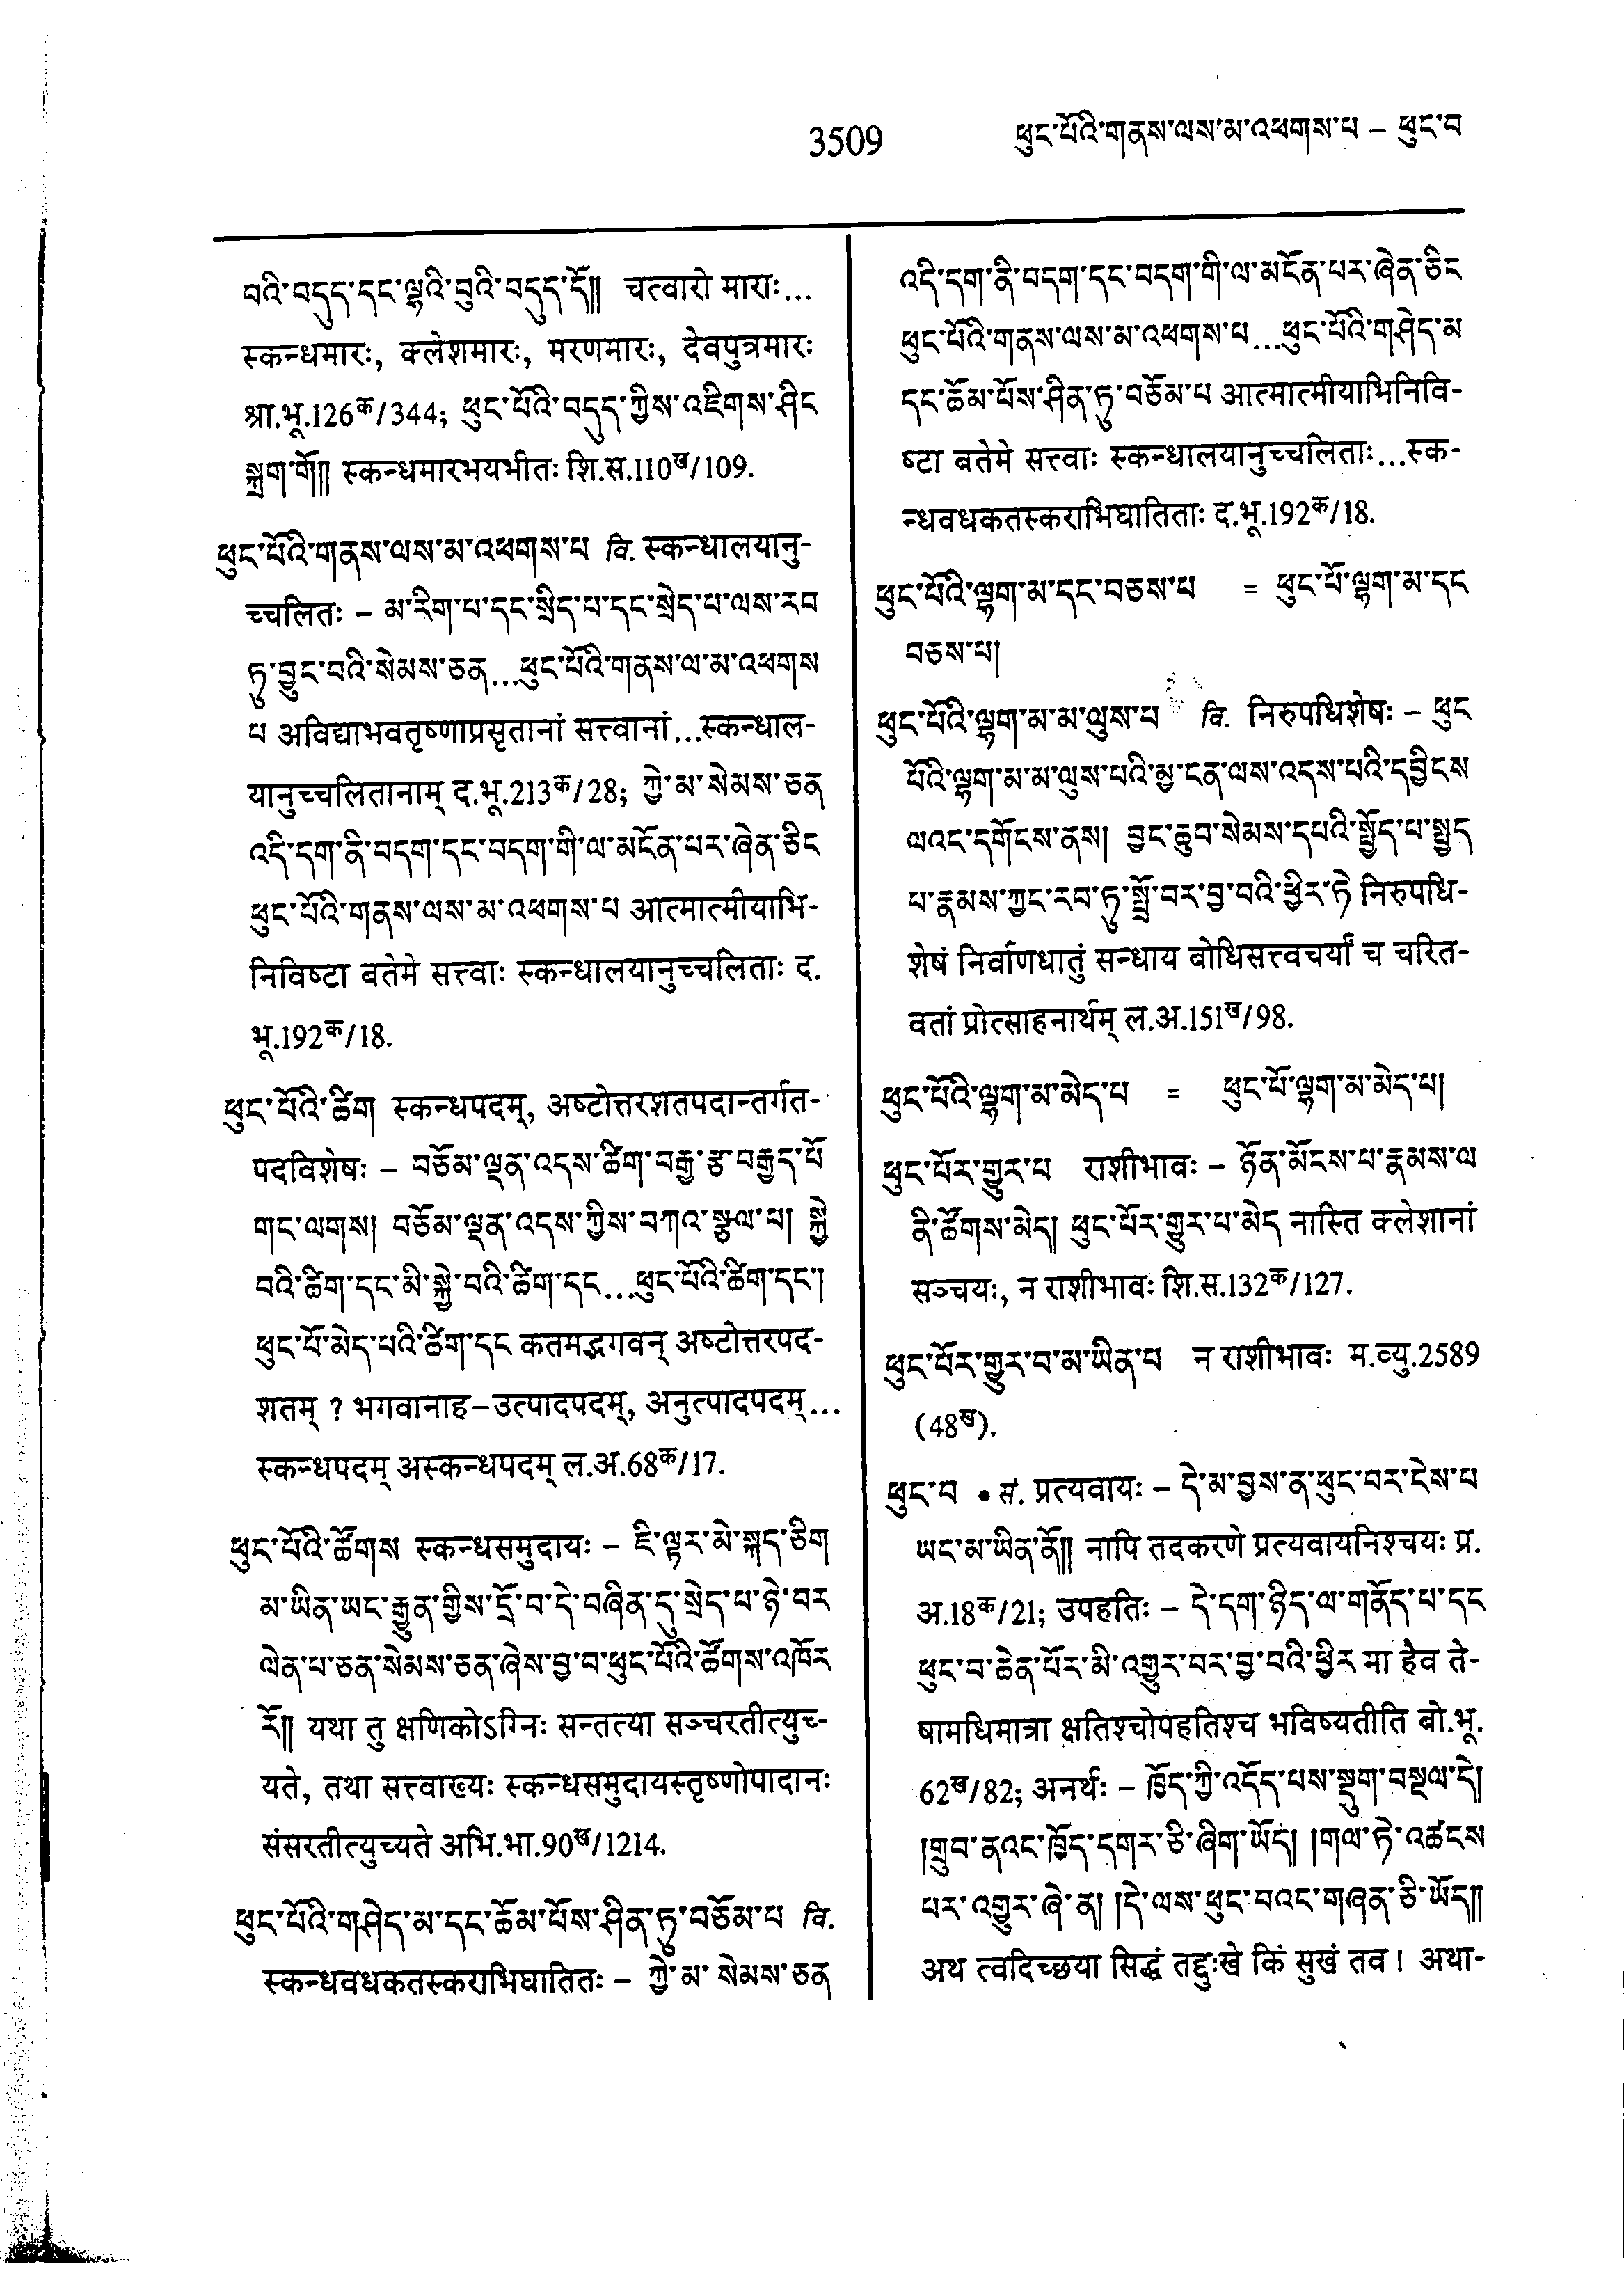 3509
ཕུང་པོའི་གནས་ལས་མ་འཕགས་པ – ཕུང་བ
བའི་བདུད་དང་ལྷའི་བུའི་བདུད་དོ།། चत्वारो माराः...
स्कन्धमारः, क्लेशमारः, मरणमारः, देवपुत्रमारः
श्रा.भू.126क/344; ཕུང་པོའི་བདུད་ཀྱིས་འཇིགས་ཤིང
སྐྲག་གོ།། स्कन्धमारभयभीतः शि.स.110ख/109.
ཕུང་པོའི་གནས་ལས་མ་འཕགས་པ वि. स्कन्धालयानु-
च्चलितः – མ་རིག་པ་དང་སྲིད་པ་དང་སྲེད་པ་ལས་རབ
ཏུ་བྱུང་བའི་སེམས་ཅན...ཕུང་པོའི་གནས་ལ་མ་འཕགས
པ अविद्याभवतृष्णाप्रसृतानां सत्त्वानां...स्कन्धाल-
यानुच्चलितानाम् द.भू.213क/28; ཀྱེ་མ་སེམས་ཅན
འདི་དག་ནི་བདག་དང་བདག་གི་ལ་མངོན་པར་ཞེན་ཅིང
ཕུང་པོའི་གནས་ལས་མ་འཕགས་པ आत्मात्मीयाभि-
निविष्टा बतेमे सत्त्वाः स्कन्धालयानुच्चलिताः द.
भू.192क/18.
ཕུང་པོའི་ཚིག स्कन्धपदम्, अष्टोत्तरशतपदान्तर्गत-
पदविशेषः – བཅོམ་ལྡན་འདས་ཚིག་བརྒྱ་རྩ་བརྒྱད་པོ
གང་ལགས། བཅོམ་ལྡན་འདས་ཀྱིས་བཀའ་སྩལ་པ། སྐྱེ
བའི་ཚིག་དང་མི་སྐྱེ་བའི་ཚིག་དང...ཕུང་པོའི་ཚིག་དང་།
ཕུང་པོ་མེད་པའི་ཚིག་དང कतमद्भगवन् अष्टोत्तरपद-
शतम् ? भगवानाह–उत्पादपदम्, अनुत्पादपदम्...
स्कन्धपदम् अस्कन्धपदम् ल.अ.68क/17.
ཕུང་པོའི་ཚོགས स्कन्धसमुदायः – ཇི་ལྟར་མེ་སྐད་ཅིག
མ་ཡིན་ཡང་རྒྱུན་གྱིས་དྲོ་བ་དེ་བཞིན་དུ་སྲེད་པ་ཉེ་བར
ལེན་པ་ཅན་སེམས་ཅན་ཞེས་བྱ་བ་ཕུང་པོའི་ཚོགས་འཁོར
རོ།། यथा तु क्षणिकोऽग्निः सन्तत्या सञ्चरतीत्युच्-
यते, तथा सत्त्वाख्यः स्कन्धसमुदायस्तृष्णोपादानः
संसरतीत्युच्यते अभि.भा.90ख/1214.
ཕུང་པོའི་གཤེད་མ་དང་ཆོམ་པོས་ཤིན་ཏུ་བཅོམ་པ वि.
स्कन्धवधकतस्कराभिघातितः – ཀྱེ་མ་སེམས་ཅན
འདི་དག་ནི་བདག་དང་བདག་གི་ལ་མངོན་པར་ཞེན་ཅིང
ཕུང་པོའི་གནས་ལས་མ་འཕགས་པ...ཕུང་པོའི་གཤེད་མ
དང་ཆོམ་པོས་ཤིན་ཏུ་བཅོམ་པ आत्मात्मीयाभिनिवि-
ष्टा बतेमे सत्त्वाः स्कन्धालयानुच्चलिताः...स्क-
न्धवधकतस्कराभिघातिताः द.भू.192क/18.
ཕུང་པོའི་ལྷག་མ་དང་བཅས་པ = ཕུང་པོ་ལྷག་མ་དང
བཅས་པ།
ཕུང་པོའི་ལྷག་མ་མ་ལུས་པ वि. निरुपधिशेषः – ཕུང
པོའི་ལྷག་མ་མ་ལུས་པའི་མྱ་ངན་ལས་འདས་པའི་དབྱིངས
ལའང་དགོངས་ནས། བྱང་ཆུབ་སེམས་དཔའི་སྤྱོད་པ་སྤྱད
པ་རྣམས་ཀྱང་རབ་ཏུ་སྤྲོ་བར་བྱ་བའི་ཕྱིར་ཏེ निरुपधि-
शेषं निर्वाणधातुं सन्धाय बोधिसत्त्वचर्यां च चरित-
वतां प्रोत्साहनार्थम् ल.अ.151ख/98.
ཕུང་པོའི་ལྷག་མ་མེད་པ = ཕུང་པོ་ལྷག་མ་མེད་པ།
ཕུང་པོར་གྱུར་པ राशीभावः – ཉོན་མོངས་པ་རྣམས་ལ
ནི་ཚོགས་མེད། ཕུང་པོར་གྱུར་པ་མེད नास्ति क्लेशानां
सञ्चयः, न राशीभावः शि.स.132क/127.
ཕུང་པོར་གྱུར་བ་མ་ཡིན་པ न राशीभावः म.व्यु.2589
(48ख).
ཕུང་བ • सं. प्रत्यवायः – དེ་མ་བྱས་ན་ཕུང་བར་ངེས་པ
ཡང་མ་ཡིན་ནོ།། नापि तदकरणे प्रत्यवायनिश्चयः प्र.
अ.18क/21; उपहतिः – དེ་དག་ཉིད་ལ་གནོད་པ་དང
ཕུང་བ་ཆེན་པོར་མི་འགྱུར་བར་བྱ་བའི་ཕྱིར मा हैव ते-
षामधिमात्रा क्षतिश्चोपहतिश्च भविष्यतीति बो.भू.
62ख/82; अनर्थः – ཁྱོད་ཀྱི་འདོད་པས་སྡུག་བསྔལ་དེ།
།གྲུབ་ནའང་ཁྱོད་དགར་ཅི་ཞིག་ཡོད། །གལ་ཏེ་འཚངས
པར་འགྱུར་ཞེ་ན། །དེ་ལས་ཕུང་བའང་གཞན་ཅི་ཡོད།།
अथ त्वदिच्छया सिद्धं तद्दुःखे किं सुखं तव। अथा-